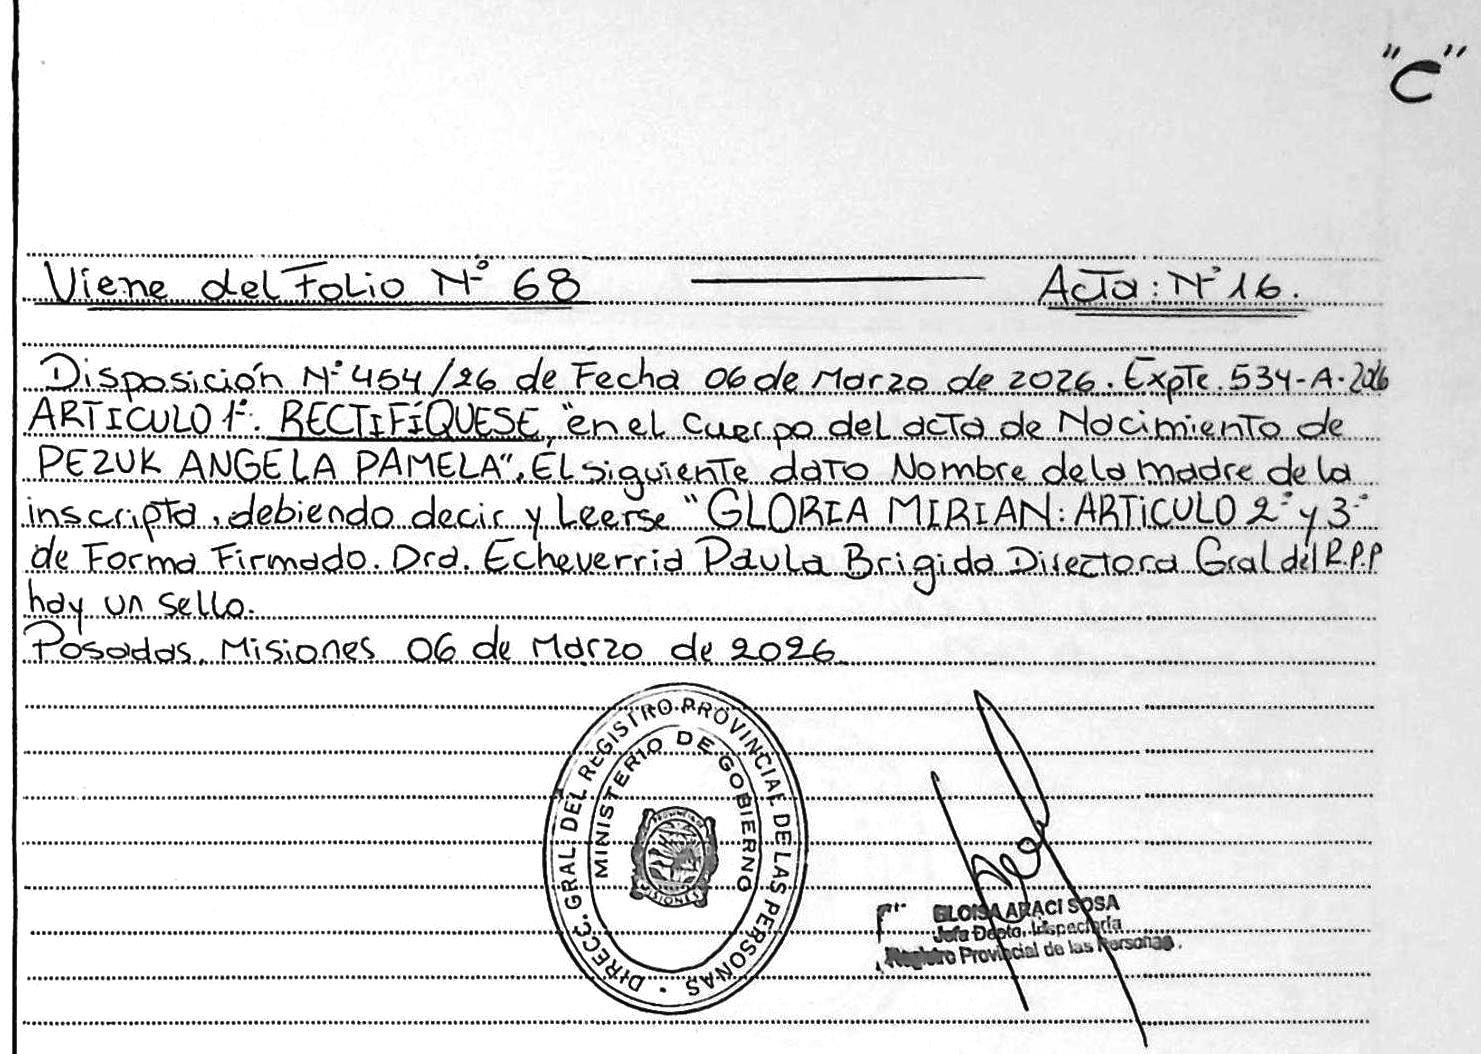 "C"
Viene del Folio Nº 68 Acta: Nº 16.
Disposición Nº 454/26 de Fecha 06 de Marzo de 2026. Expte. 534-A-2026
ARTICULO 1º: RECTIFÍQUESE, "en el cuerpo del acta de Nacimiento de
PEZUK ANGELA PAMELA", El siguiente dato Nombre de la madre de la
inscripta, debiendo decir y Leerse "GLORIA MIRIAN: ARTICULO 2º y 3º
de Forma Firmado. Dra. Echeverria Paula Brigida Directora Gral del R.P.P
hay un sello.
Posadas, Misiones 06 de Marzo de 2026
DIRECC. GRAL. DEL REGISTRO PROVINCIAL DE LAS PERSONAS
MINISTERIO DE GOBIERNO
MISIONES
ELOISA ARACI SOSA
Jefa Depto. Inspectoría
Registro Provincial de las Personas